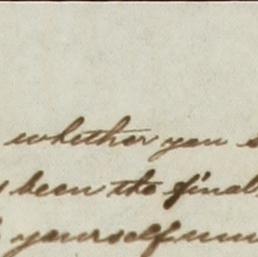 whether you
been the final
yourself